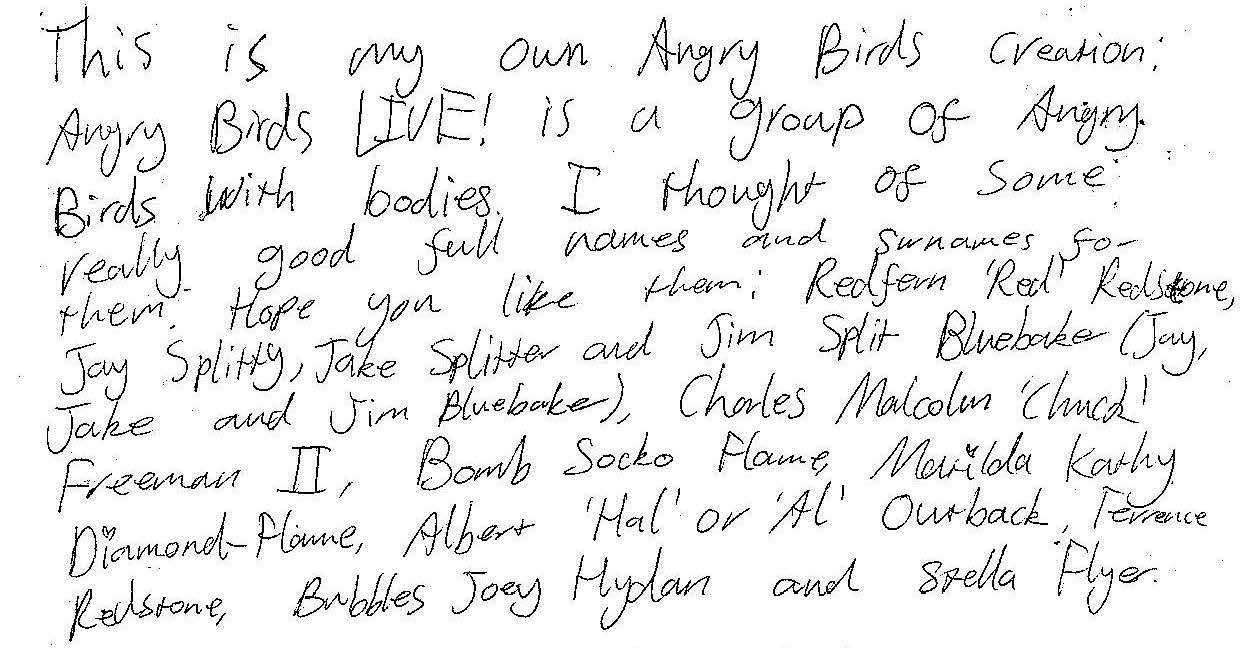 This is my own Angry Birds creation:
Angry Birds LIVE! is a group of Angry
Birds with bodies. I thought of some
really good full names and surnames fo-
them. Hope you like them: Redfern 'Red' Redstone,
Jay Splitty, Jake Splitter and Jim Split Bluebaker (Jay,
Jake and Jim Bluebaker), Charles Malcolm 'Chuck'
Freeman II, Bomb Socko Flame, Matilda Kathy
Diamond-Flame, Albert 'Hal' or 'Al' Outback, Terrence
Redstone, Bubbles Joey Hydan and Stella Flyer.